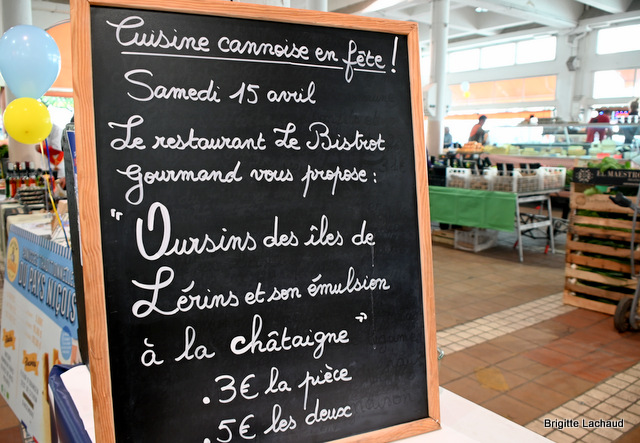 Cuisine cannoise en fête !
Samedi 15 avril
Le restaurant Le Bistrot
Gourmand vous propose :
" Oursins des îles de
Lérins et son émulsion
à la châtaigne "
. 3€ la pièce
. 5€ les deux
PAYS NIÇOIS
EL MAESTRO
Brigitte Lachaud